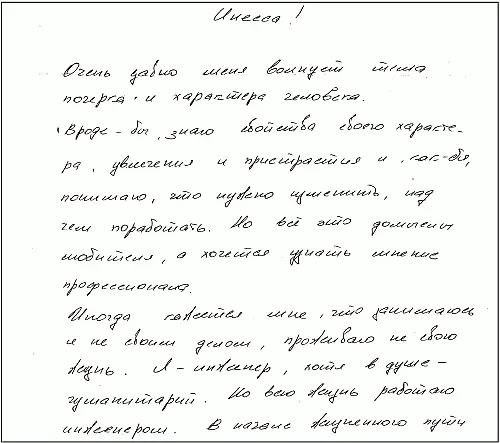 Инесса!
Очень давно меня волнует тема
почерка и характера человека.
Вроде-бы, знаю свойства своего характе-
ра, увлечения и пристрастия и, как-бы,
понимаю, что нужно изменить, над
чем поработать. Но всё это домыслы
любителя, а хочется узнать мнение
профессионала.
Иногда кажется мне, что занимаюсь
я не своим делом, проживаю не свою
жизнь. Я - инженер, хотя в душе -
гуманитарий. Но всю жизнь работаю
инженером. В начале жизненного пути